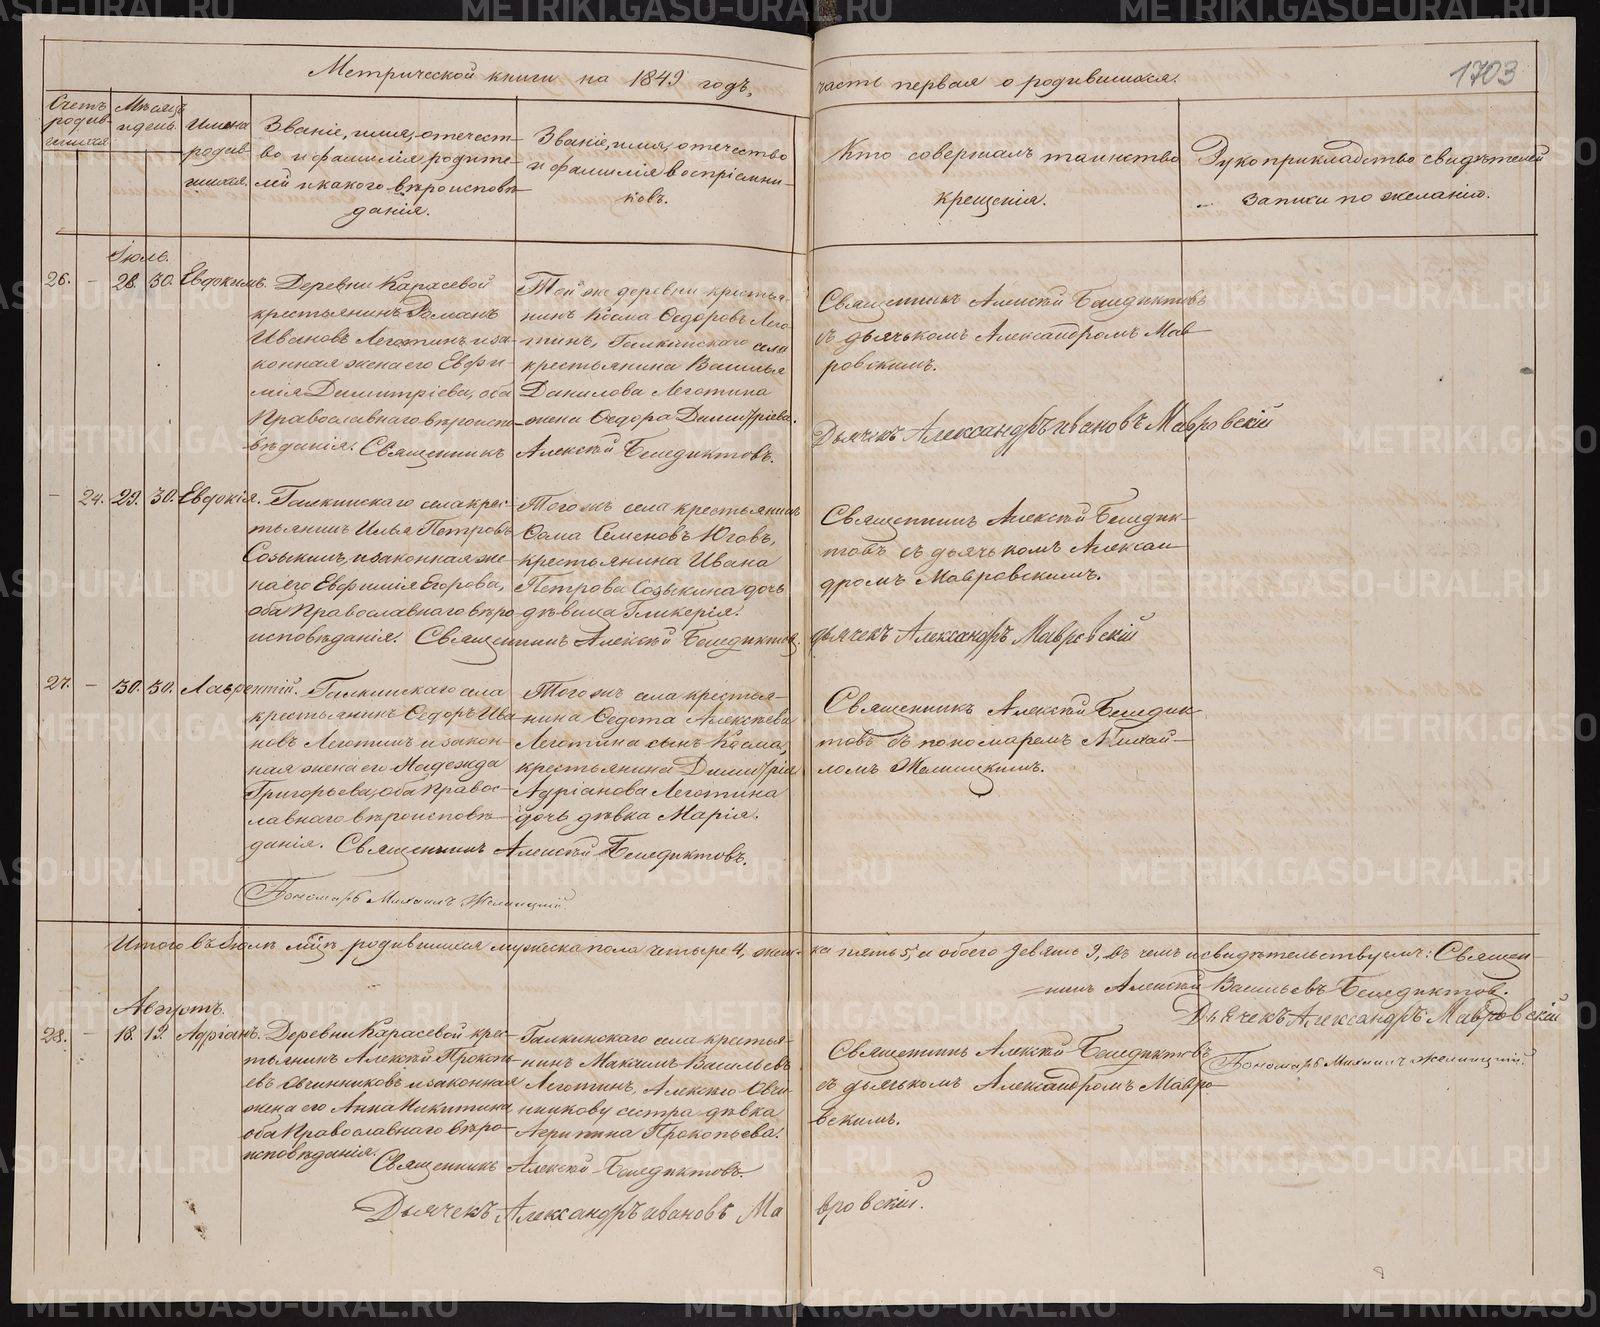 Метрической книги на 1849 годъ,
часть первая о родившихся.
1703
Счетъ родив-шихся
Мѣсяцъ и день
Имена родив-шихся.
Званіе, имя, отечест-
во и фамилія родите-
лей и какого вѣроисповѣ-
данія.
Званіе, имя, отечество
и фамилія воспріемни-
ковъ.
Кто совершалъ таинство
крещенія.
Рукоприкладство свидѣтелей
записи по желанію.
Іюль.
26. – 28. 30. Евдокимъ.
Деревни Карасевой
крестьянинъ Романъ
Ивановъ Леготинъ и за-
конная жена его Евфи-
мія Димитріева, оба
Православнаго вѣроиспо-
вѣданія. Священникъ Алексѣй Бенедиктовъ.
Той же деревни крестья-
нинъ Косма Ѳедоровъ Лего-
тинъ, Галкинскаго села
крестьянина Василья
Данилова Леготина
жена Ѳедора Димитріева.
Священникъ Алексѣй Бенедиктовъ
съ дьячькомъ Александромъ Мав-
ровскимъ.
Дьячекъ Александръ Ивановъ Мавровскій
– 24. 29. 30. Евдокія.
Галкинскаго села крес-
тьянинъ Илья Петровъ
Созыкинъ, и законная же-
на его Евфимія Егорова,
оба Православнаго вѣро-
исповѣданія. Священникъ Алексѣй Бенедиктовъ
Того жъ села крестьянинъ
Ѳама Семеновъ Юговъ,
крестьянина Ивана
Петрова Созыкина дочь
дѣвица Гликерія.
Священникъ Алексѣй Бенедик-
товъ съ дьячькомъ Алексан-
дромъ Мавровскимъ.
дьячекъ Александръ Мавровскій
27. – 30. 30. Лаврентій.
Галкинскаго села
крестьянинъ Ѳедоръ Ива-
новъ Леготинъ и закон-
ная жена его Надежда
Григорьева, оба Правос-
лавнаго вѣроисповѣ-
данія. Священникъ Алексѣй Бенедиктовъ.
Того жъ села крестья-
нина Ѳедота Алексѣева
Леготина сынъ Косма,
крестьянина Димитрія
Адріанова Леготина
дочь дѣвка Марія.
Священникъ Алексѣй Бенедик-
товъ съ пономаремъ Михай-
ломъ Желницкимъ.
Пономарь Михаилъ Желницкій.
Итого въ Іюлѣ мцѣ родившихся мужеска пола четыре 4, жен-
ка пять 5, а обоего девять 9, въ чемъ и свидѣтельствуемъ: Священ-
никъ Алексѣй Васильевъ Бенедиктовъ.
Дьячекъ Александръ Мавровскій
Пономарь Михаилъ Желницкій.
Августъ.
28. – 18. 19. Адріанъ.
Деревни Карасевой крес-
тьянинъ Алексѣй Прокопь-
евъ Овчинниковъ и законная
жена его Анна Никитина
оба Православнаго вѣро-
исповѣданія. Священникъ Алексѣй Бенедиктовъ.
Галкинскаго села крестья-
нинъ Максимъ Васильевъ
Леготинъ, Алексѣю Овчи-
нникову сестра дѣвка
Агрипина Прокопьева.
Священникъ Алексѣй Бенедиктовъ
съ дьячькомъ Александромъ Мавро-
вскимъ.
Дьячекъ Александръ Ивановъ Ма
вровскій.
METRIKI.GASO-URAL.RU